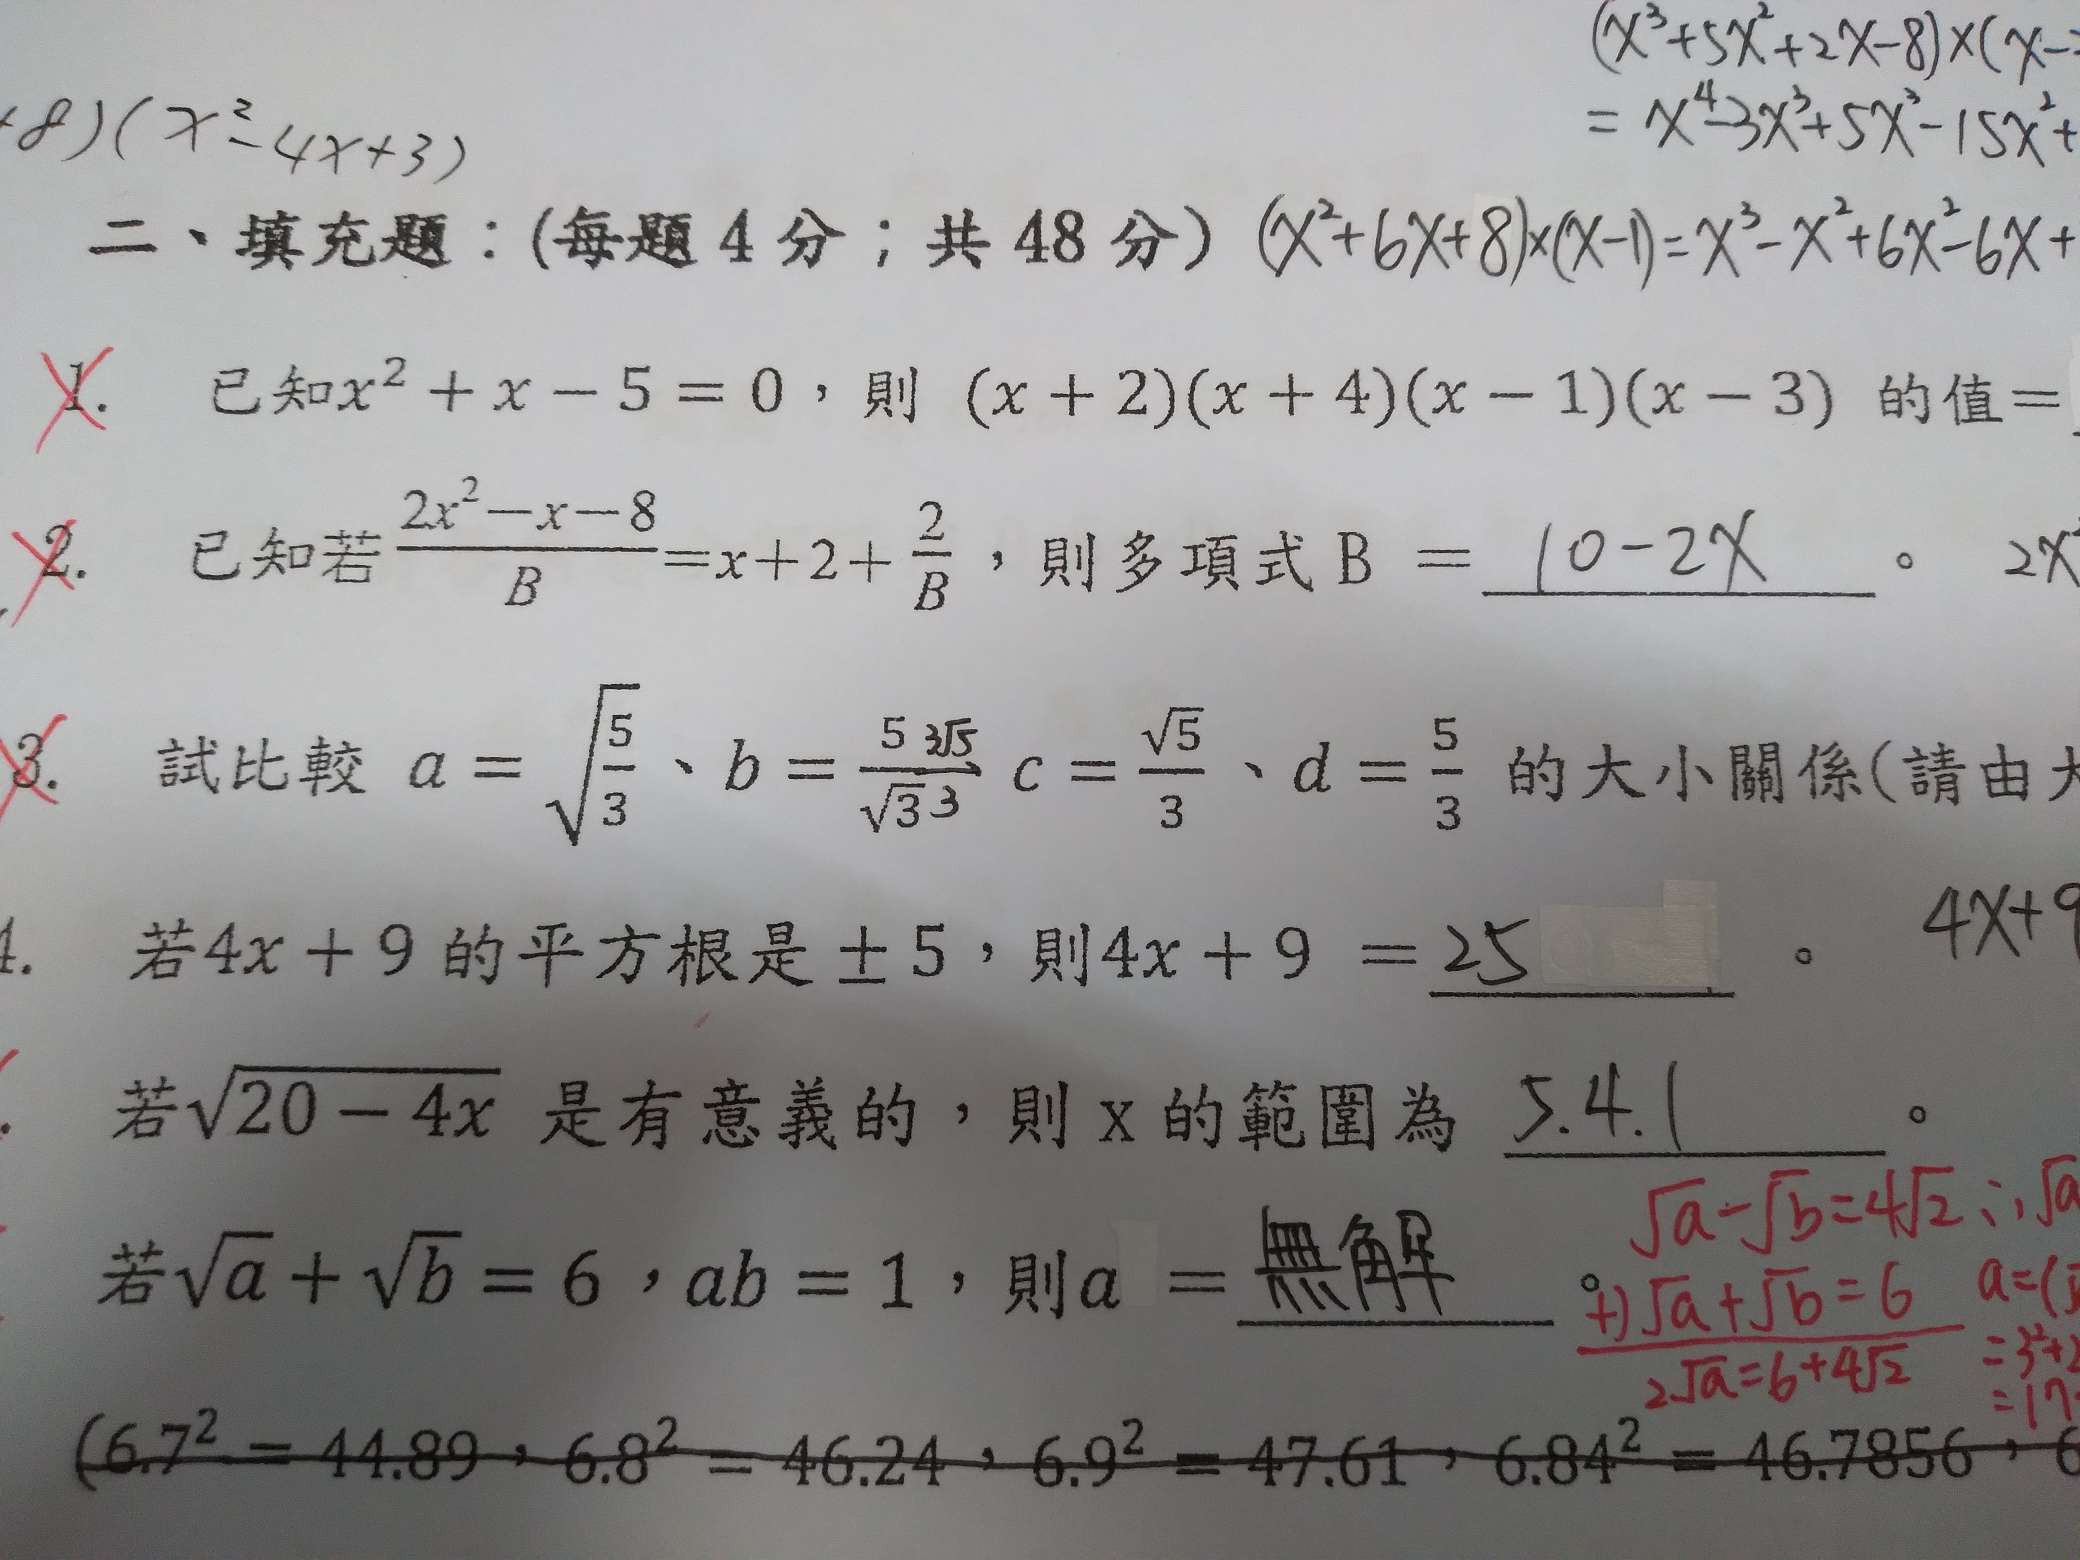 (x³+5x²+2x-8)×(x-
= x⁴-3x³+5x³-15x²+
+8)(x²-4x+3)
二、填充題：(每題 4 分；共 48 分) (x²+6x+8)×(x-1)=x³-x²+6x²-6x+
1. 已知x² + x − 5 = 0，則 (x + 2)(x + 4)(x − 1)(x − 3) 的值=
2. 已知若 (2x²−x−8)/B =x+2+ 2/B ，則多項式 B = 10-2x 。 2x²
3. 試比較 a = √(5/3)、b = 5/√3 3√5/3 c = √5/3、d = 5/3 的大小關係(請由大
4. 若4x + 9 的平方根是 ± 5，則4x + 9 = 25 。 4x+9
若√(20 − 4x) 是有意義的，則 x 的範圍為 5.4.1 。
若√a + √b = 6，ab = 1，則a = 無解 。
√a-√b=4√2 ∴√a
+)√a+√b=6 a=(
2√a=6+4√2 =3²+2
=17
(6.7² = 44.89，6.8² = 46.24，6.9² = 47.61，6.84² = 46.7856，6